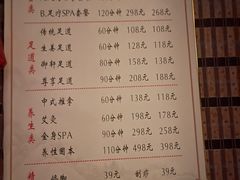 类 B.足疗SPA套餐 120分钟 298元 268元
足道类
传统足道 60分钟 108元 108元
生姜足道 60分钟 128元 118元
御轩足道 80分钟 158元 138元
尊享足道 90分钟 208元 188元
养生类
中式推拿 60分钟 138元 118元
艾灸 60分钟 198元 178元
全身SPA 90分钟 298元 258元
养性固本 110分钟 498元 398元
精
修脚 39元 刮痧 39元